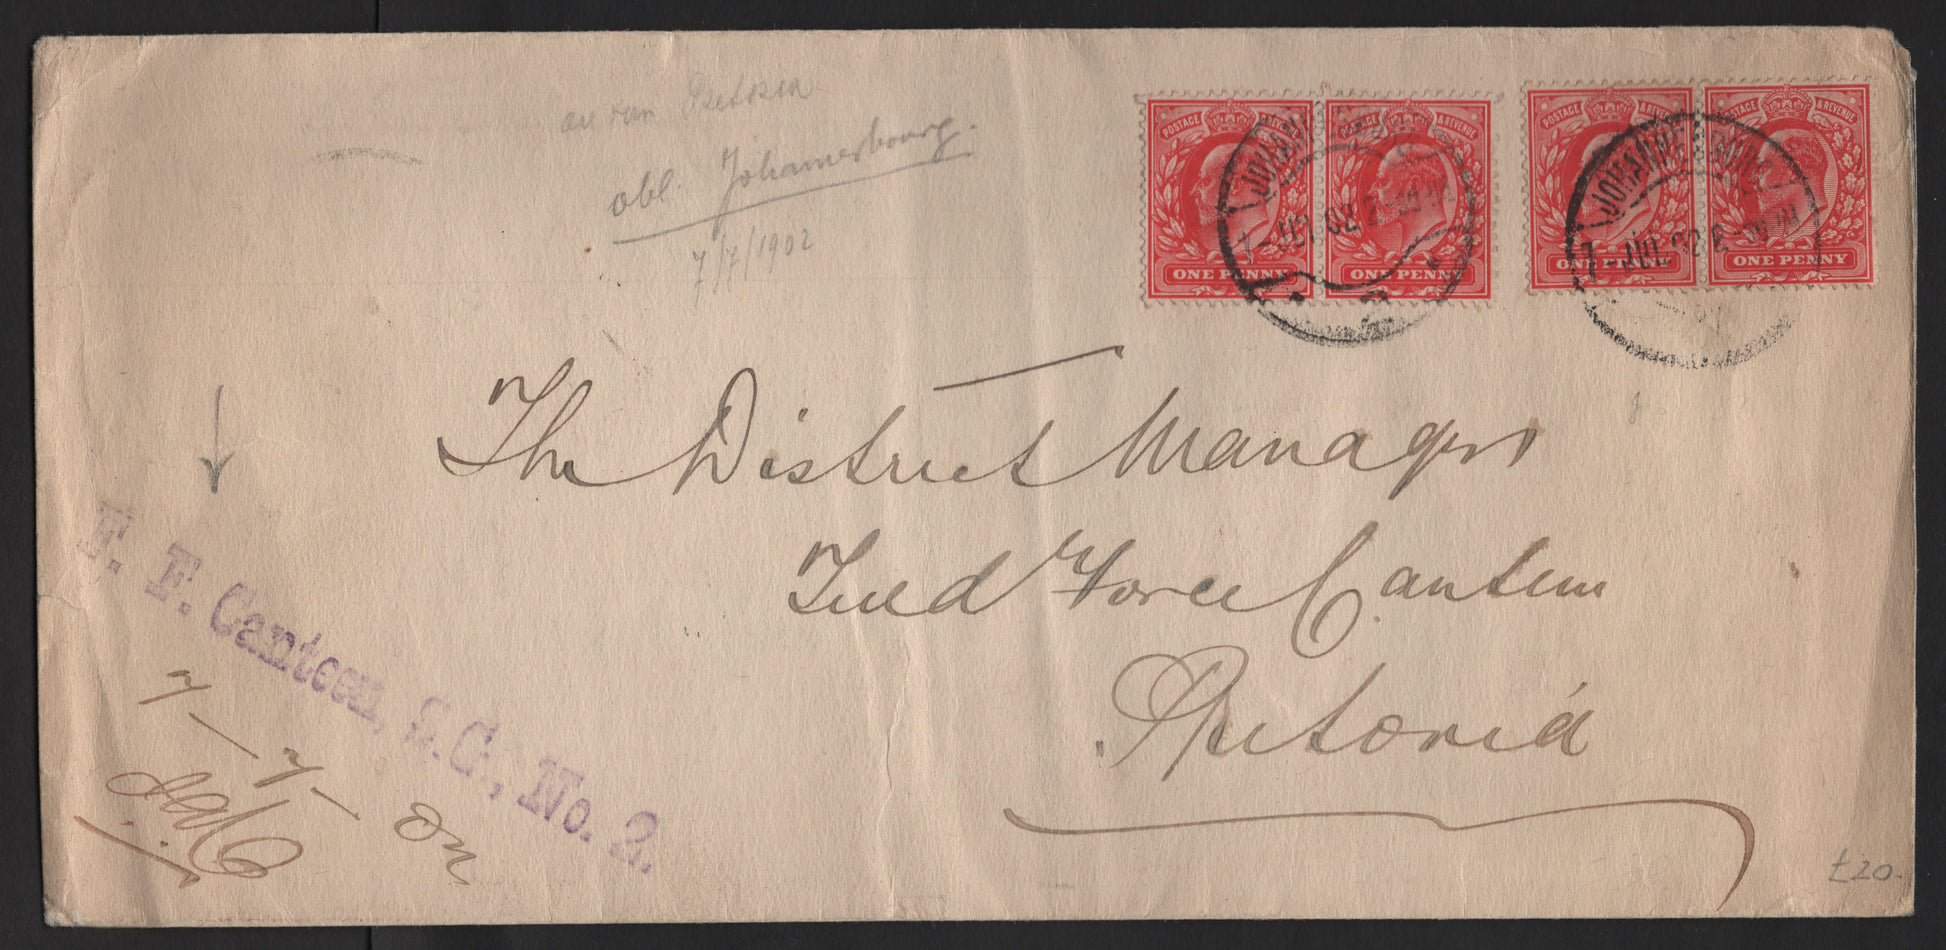 obl. Johannesbourg.
7/7/1902
POSTAGE & REVENUE
ONE PENNY
POSTAGE & REVENUE
ONE PENNY
POSTAGE & REVENUE
ONE PENNY
POSTAGE & REVENUE
ONE PENNY
JOHANNESBURG
7-JUL 02
JOHANNESBURG
7-JUL 02
The District Manager
Field Force Canteen
Pretoria
F. F. Canteen, S.C., No. 2.
7-7-02
£20.